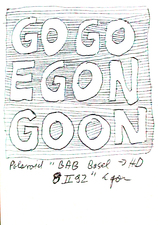 GOGO
EGON
GOON
Polaroid "BAB Basel → HD
8 II 92" Egon